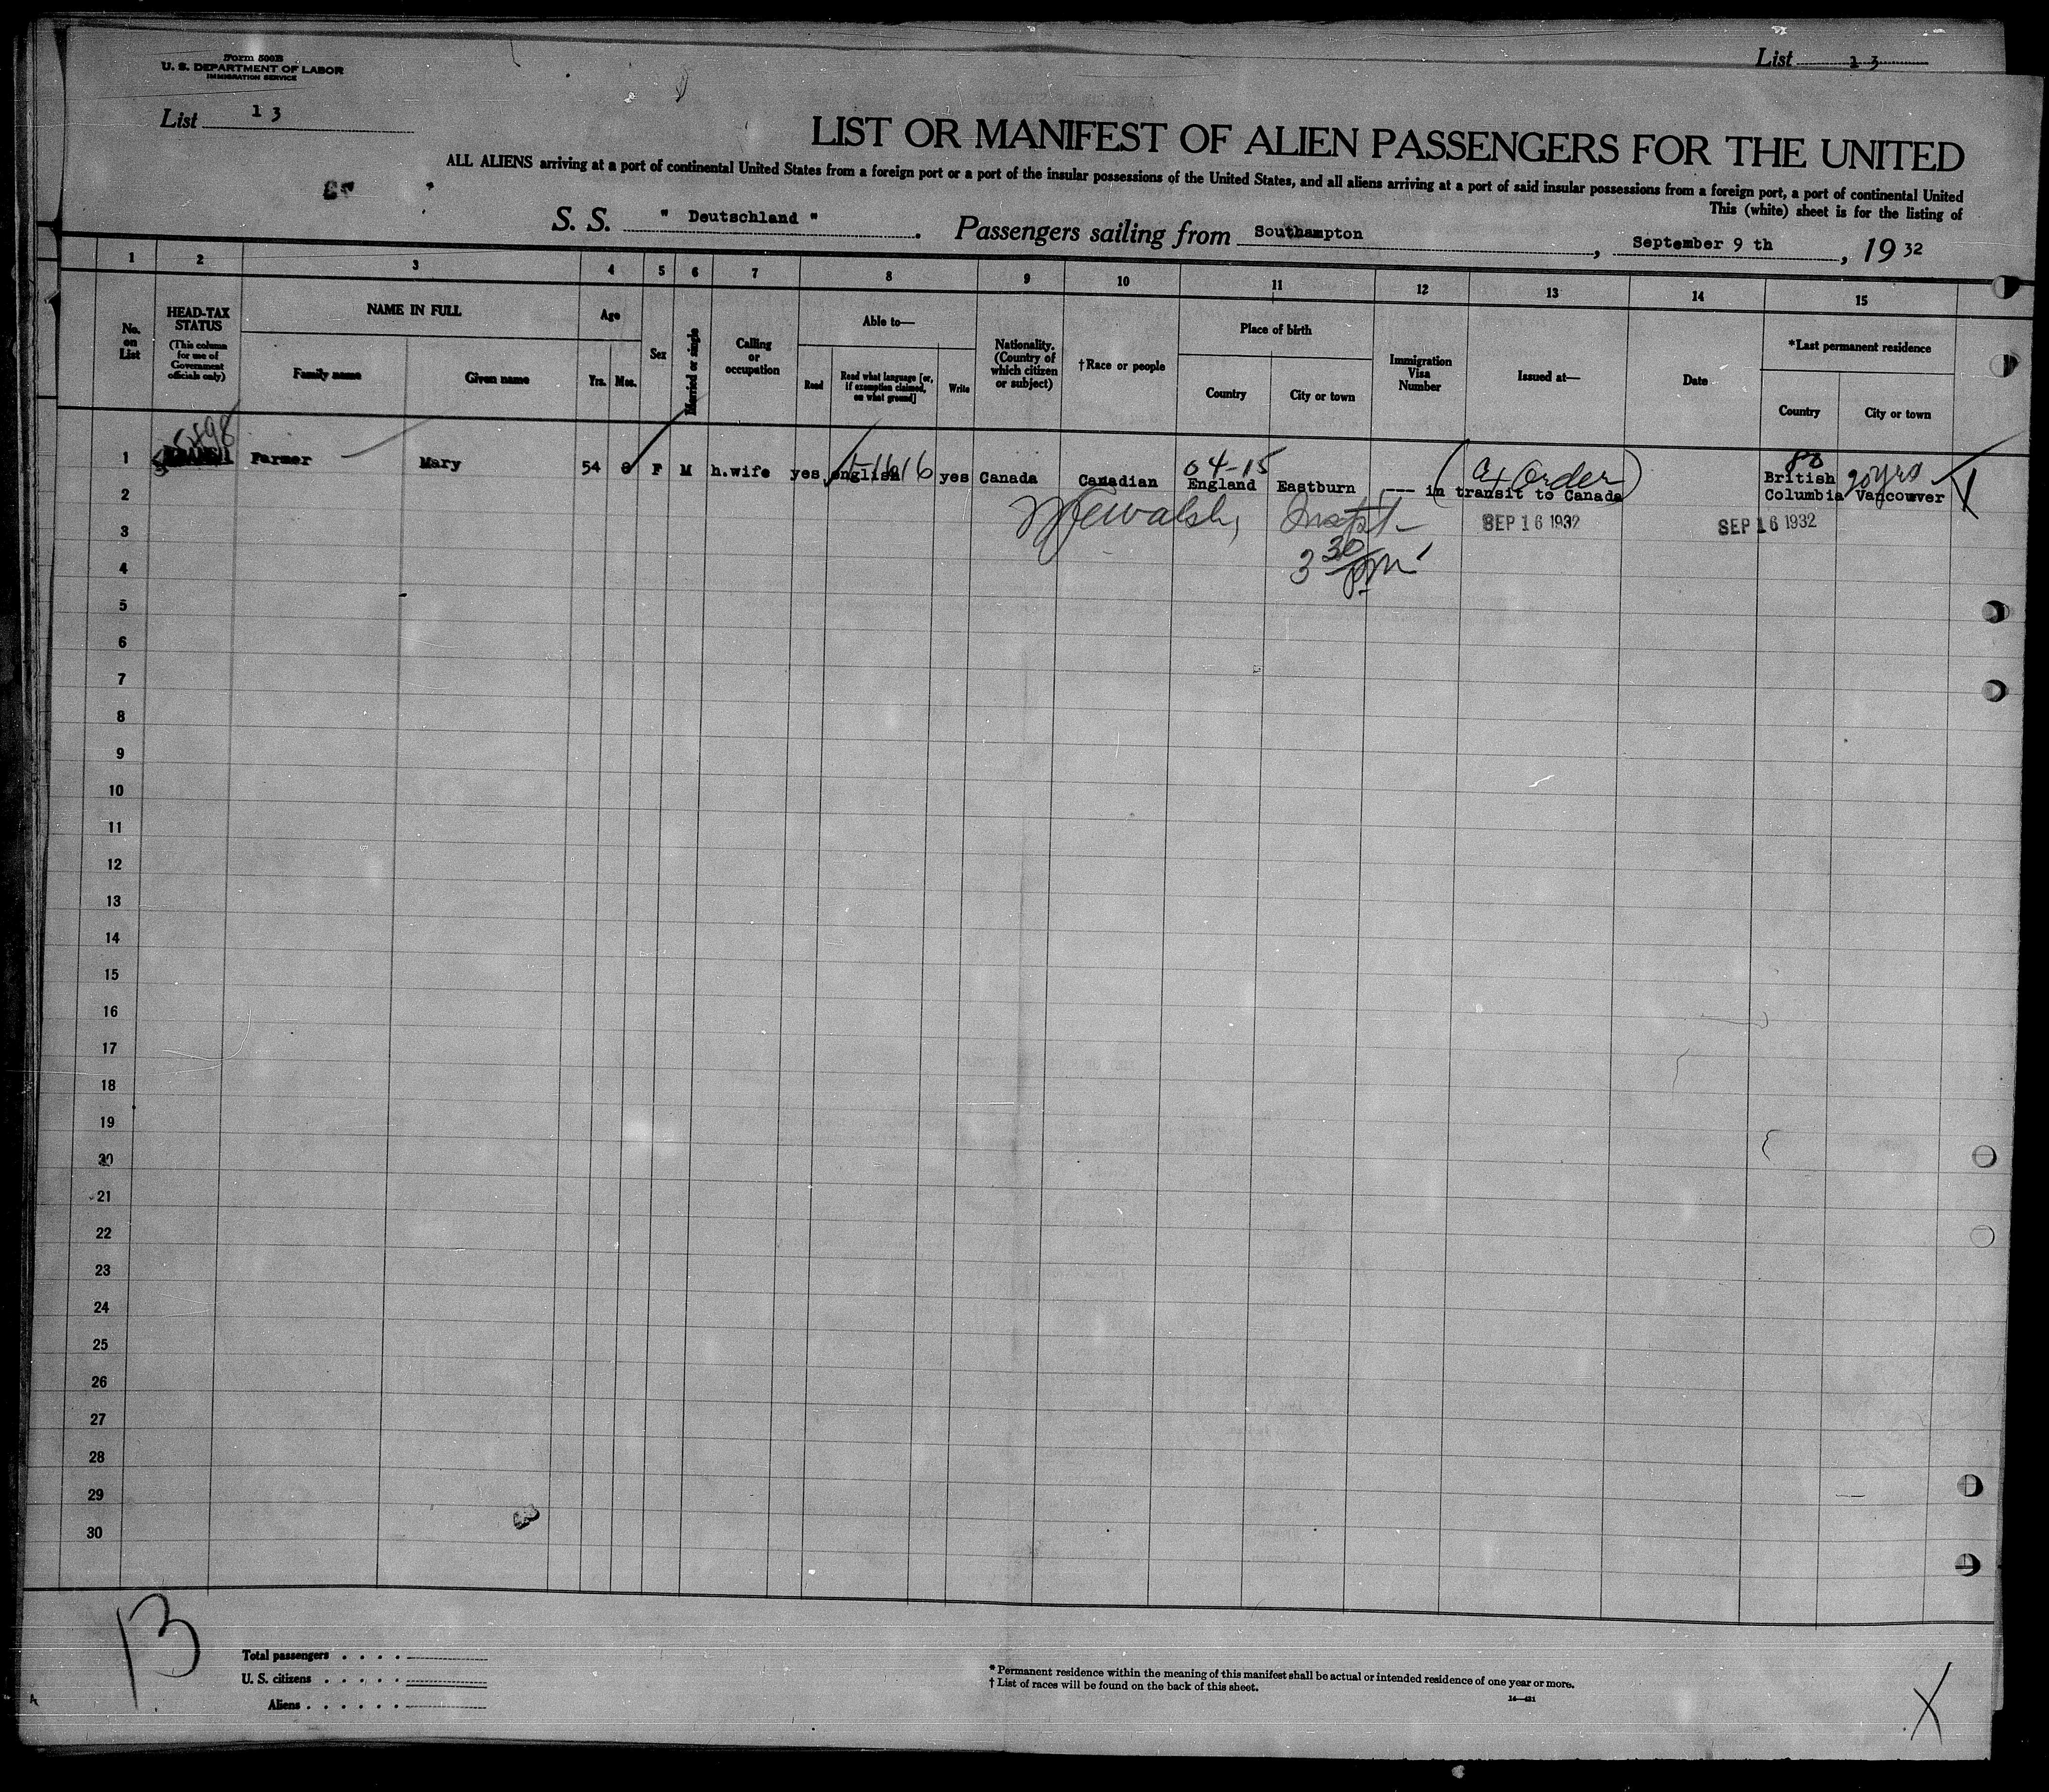 Form 500B
U. S. DEPARTMENT OF LABOR
IMMIGRATION SERVICE
List 13
List 13
LIST OR MANIFEST OF ALIEN PASSENGERS FOR THE UNITED
ALL ALIENS arriving at a port of continental United States from a foreign port or a port of the insular possessions of the United States, and all aliens arriving at a port of said insular possessions from a foreign port, a port of continental United
This (white) sheet is for the listing of
S. S. " Deutschland " . Passengers sailing from Southampton , September 9 th , 19 32
1 2 3 4 5 6 7 8 9 10 11 12 13 14 15
No. on List
HEAD-TAX STATUS
(This column for use of Government officials only)
NAME IN FULL
Family name
Given name
Age
Yrs.
Mos.
Sex
Married or single
Calling or occupation
Able to—
Read
Read what language [or, if exemption claimed, on what ground]
Write
Nationality. (Country of which citizen or subject)
†Race or people
Place of birth
Country
City or town
Immigration Visa Number
Issued at—
Date
*Last permanent residence
Country
City or town
5498
04-15
Order
80
20 yrs
1 Farmer Mary 54 F M h.wife yes english yes Canada Canadian England Eastburn --- in transit to Canada British Columbia Vancouver
SEP 16 1932
SEP 16 1932
3 30 pm
2
3
4
5
6
7
8
9
10
11
12
13
14
15
16
17
18
19
20
21
22
23
24
25
26
27
28
29
30
13
Total passengers . . . .
U. S. citizens . . . . .
Aliens . . . . . .
* Permanent residence within the meaning of this manifest shall be actual or intended residence of one year or more.
† List of races will be found on the back of this sheet.
14—431
X